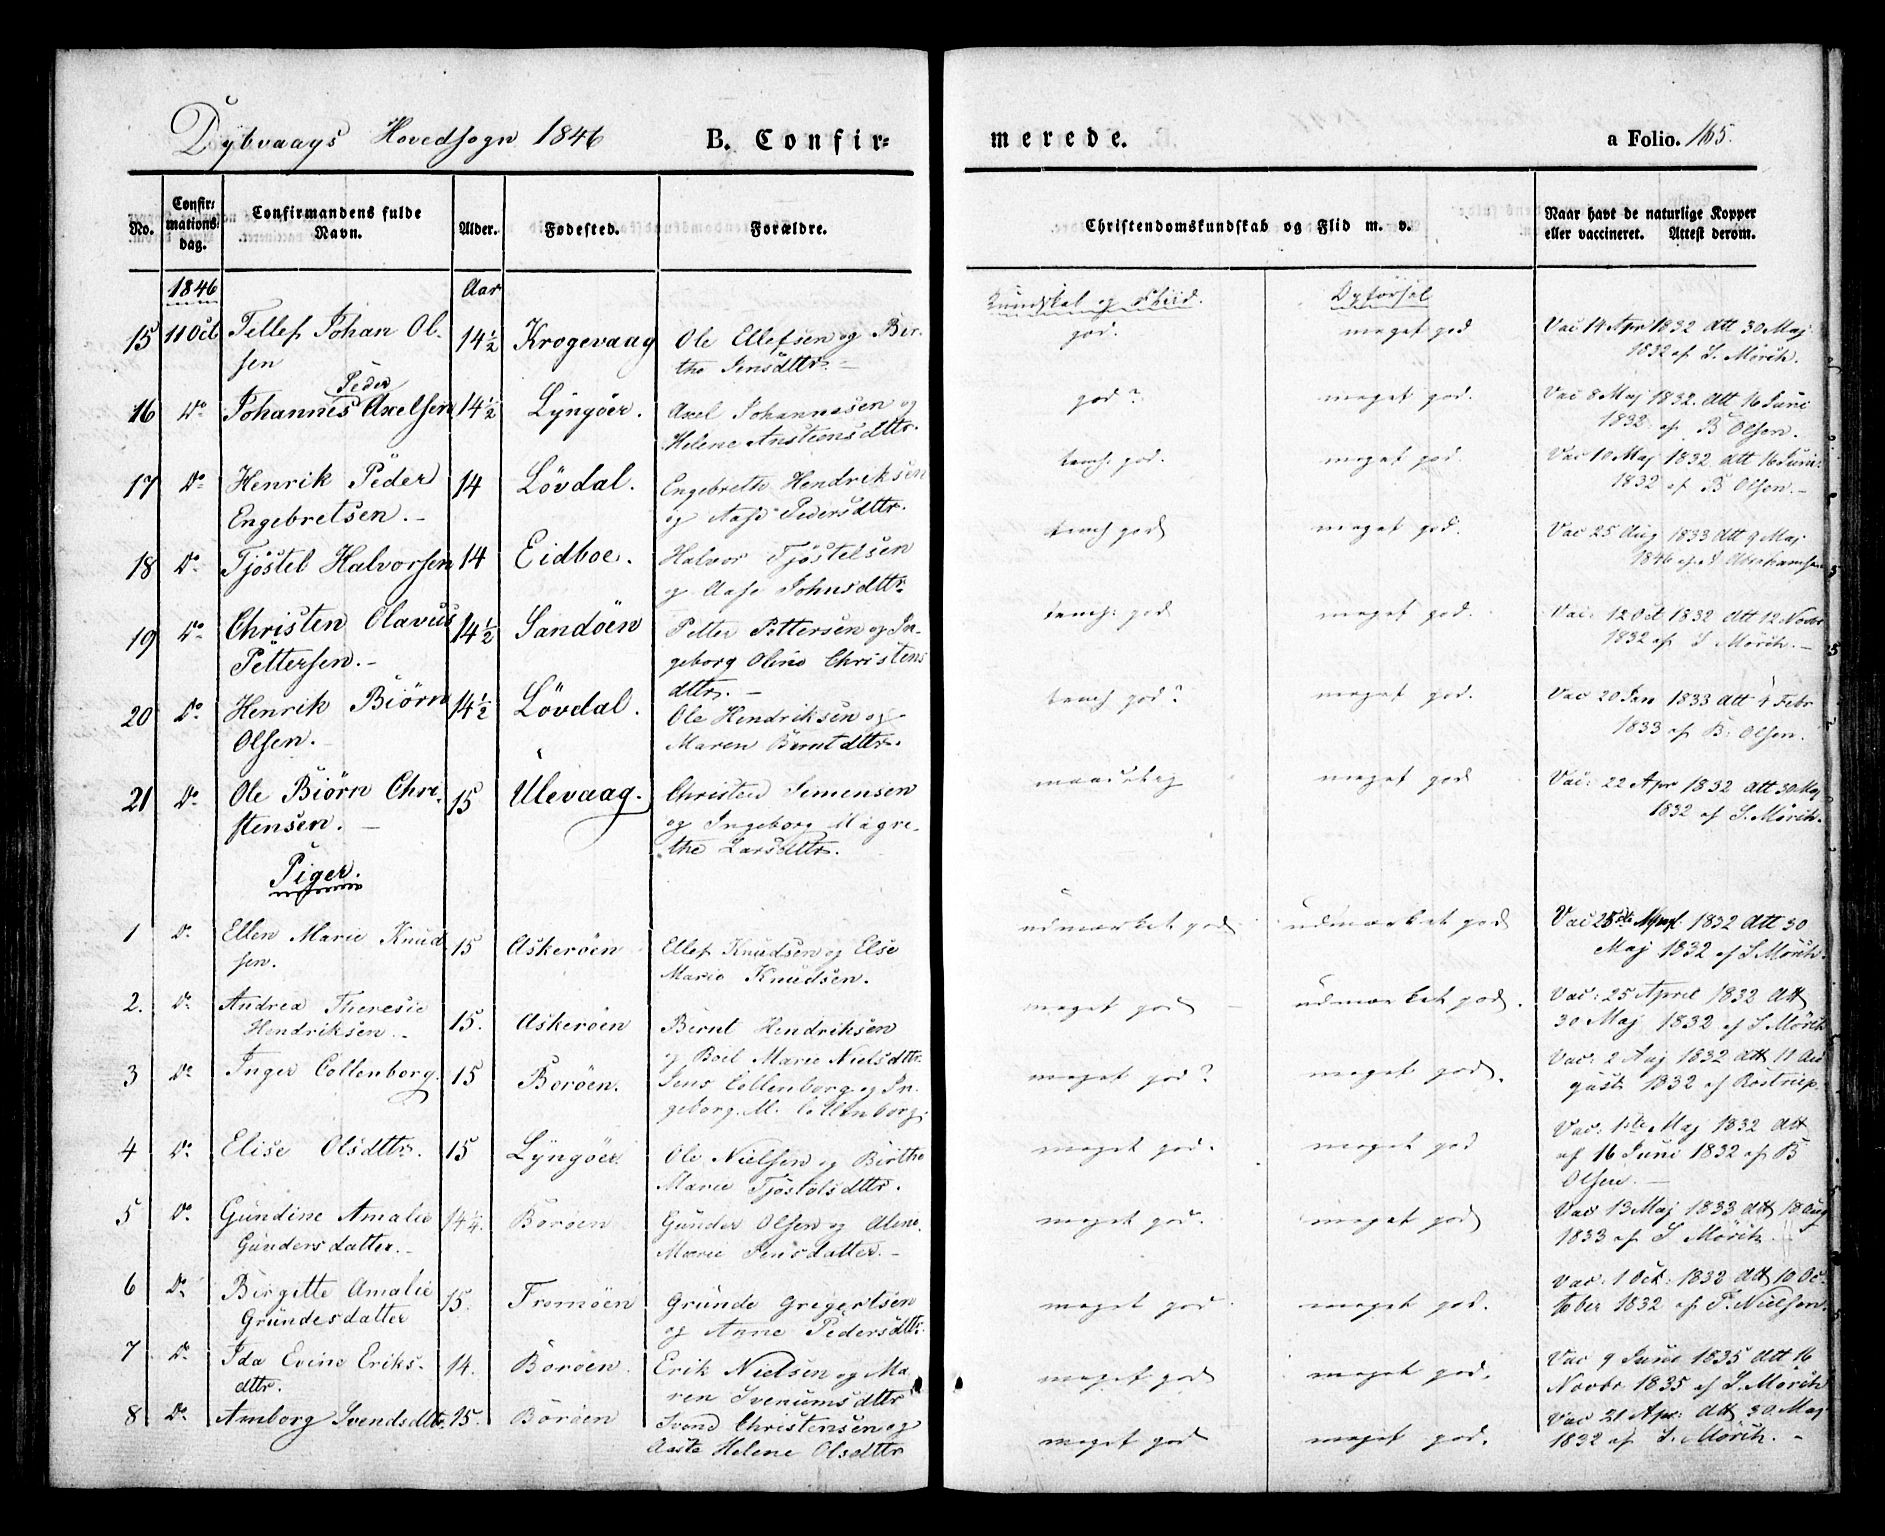 Dybvaags Hovedsogn 1846 B. Confirmerede. a Folio. 165.
No. Confirmationsdag. Confirmandens fulde Navn. Alder. Fødested. Forældre. Christendomskundskab og Flid m. v. Naar havt de naturlige Kopper eller vaccineret. Attest derom.
1846 Aar Kundskab og Fliid. Opførsel
15 11 Oct Tellef Johan Ol- 14½ Krogevaag Ole Ellefsen og Bir- god. meget god Vac 14 Apr 1832 Att 30 Maj
sen the Jensdttr. – 1832 af S. Mörch.
Peder
16 Do Johannes Axelsen 14½ Lyngöer. Axel Johannesen og god? meget god. Vac 8 Maj 1832. Att 16 Juni
Helene Anstensdttr. 1832 af B Olsen.
17 Do Henrik Peder 14 Lövdal. Engebreth Hendriksen temh: god. meget god Vac 10 Maj 1832 Att 16 Juni
Engebretsen. – og Aase Pedersdttr. 1832 af B Olsen. –
18 Do Tjöstel Halvorsen 14 Eidboe. Halvor Tjöstelsen temh god meget god. Vac 25 Aug 1833 Att 9 Maj
og Aase Johnsdttr. 1846 af Abrahamsen
19 Do Christen Olavus 14½ Sandöen Petter Pettersen og In- temh: god meget god. Vac: 12 Oct 1832 Att 12 Novbr
Pettersen. – geborg Oline Christens 1832 af S Mörch. –
dttr. –
20 Do Henrik Biörn 14½ Lövdal. Ole Hendriksen og temh god? meget god. Vac 20 Jan 1833 Att 4 Febr
Olsen. Maren Berntdttr. 1833 af B. Olsen.
21 Do Ole Biörn Chri- 15 Ulevaag. Christen Simensen maadelig meget god Vac: 22 Apr 1832 Att 30 Maj
stensen. – og Ingeborg Magre- 1832 af S. Mörch.
the Larsdttr.
Piger.
1 Do Ellen Marie Knud 15 Askeröen Ellef Knudsen og Else udmærket god udmærket god Vac 25de April 1832 Att 30
sen. Marie Knudsen. Maj 1832 af S Mörch.
2. Do Andrea Theresie 15. Askeröen Bernt Hendriksen meget god – udmærket god. Vac: 25 April 1832 Att
Hendriksen. – og Boel Marie Nielsdttr. 30 Maj 1832 af S Mörch
3 Do Inger Collenborg. 15 Boröen. Jens Collenborg og In- meget god? meget god. Vac: 2 Aug 1832 Att 11 Au
geborg. M. Collenborg. gust 1832 af Rostrup.
4 Do Elise Olsdttr. 15 Lyngöer. Ole Nielsen og Birthe meget god. meget god Vac. 1ste Maj 1832 Att
Marie Tjöstolsdttr. af 16 Juni 1832 af B
Olsen. –
5 Do Gundine Amalie 14¼. Boröen Gunder Olsen og Alene meget god. meget god Vac 13 Maj 1833 Att 18 Aug
Gundersdatter. – Marie Jensdatter. – 1833 af S Mörch
6 Do Birgitte Amalie 15. Tromöen Grunde Gregertsen meget god. meget god. Vac: 1 Oct: 1832 Att 10 Oc-
Grundesdatter og Anne Pedersdttr. tober 1832 af P. Nielsen.
7 Do Ida Evine Eriks- 14. Boröen Erik Nielsen og Ma meget god meget god. Vac 9 Juni 1835 Att 16
dttr. ren Svenumsdttr Novbr 1835 af S. Mörch
8 Do Amborg Svendsdttr. 15. Boröen Svend Christensen og meget god meget god. Vac 21 Apr: Att 30. Maj
Aaste Helene Olsdttr 1832 af S. Mörch. –